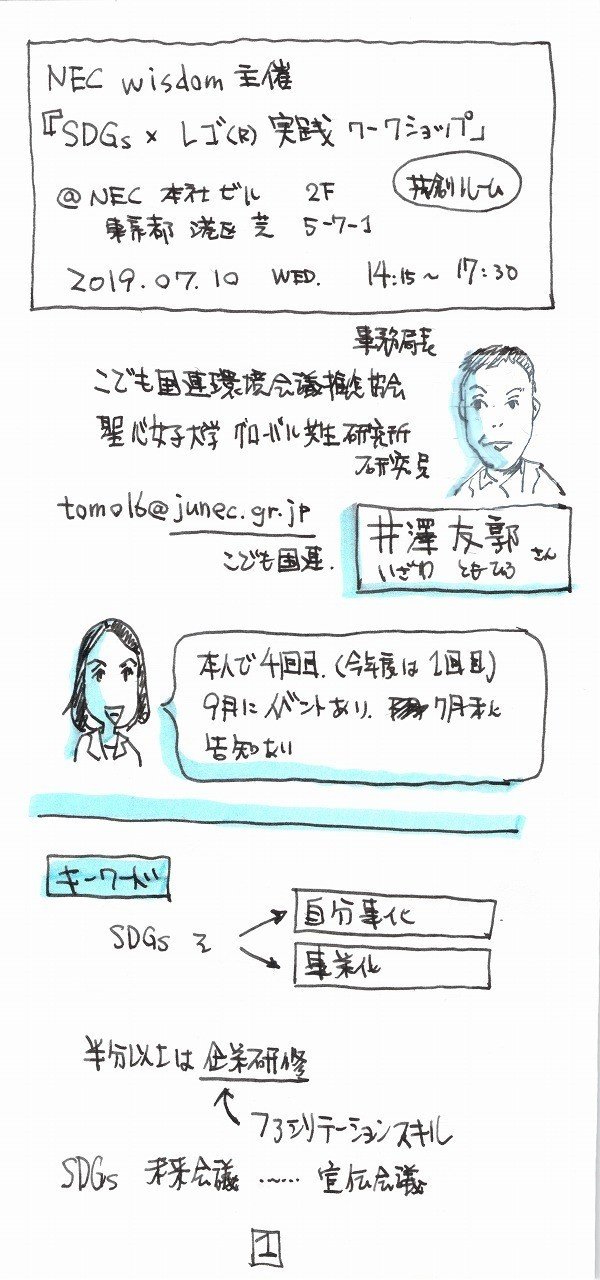 NEC wisdom 主催
『SDGs × レゴ(R) 実践 ワークショップ』
@NEC 本社ビル 2F 共創ルーム
東京都 港区 芝 5-7-1
2019.07.10 WED. 14:15〜 17:30
事務局長
こども国連環境会議推進協会
聖心女子大学 グローバル共生研究所
研究員
tomo16@junec.gr.jp
こども国連.
井澤 友郭 さん
いざわ ともひろ
本人で4回目.(今年度は1回目)
9月にイベントあり. 7月末に
告知あい
キーワード
SDGs を
自分事化
事業化
半分以上は 企業研修
ファシリテーションスキル
SDGs 未来会議 …… 宣伝会議
1